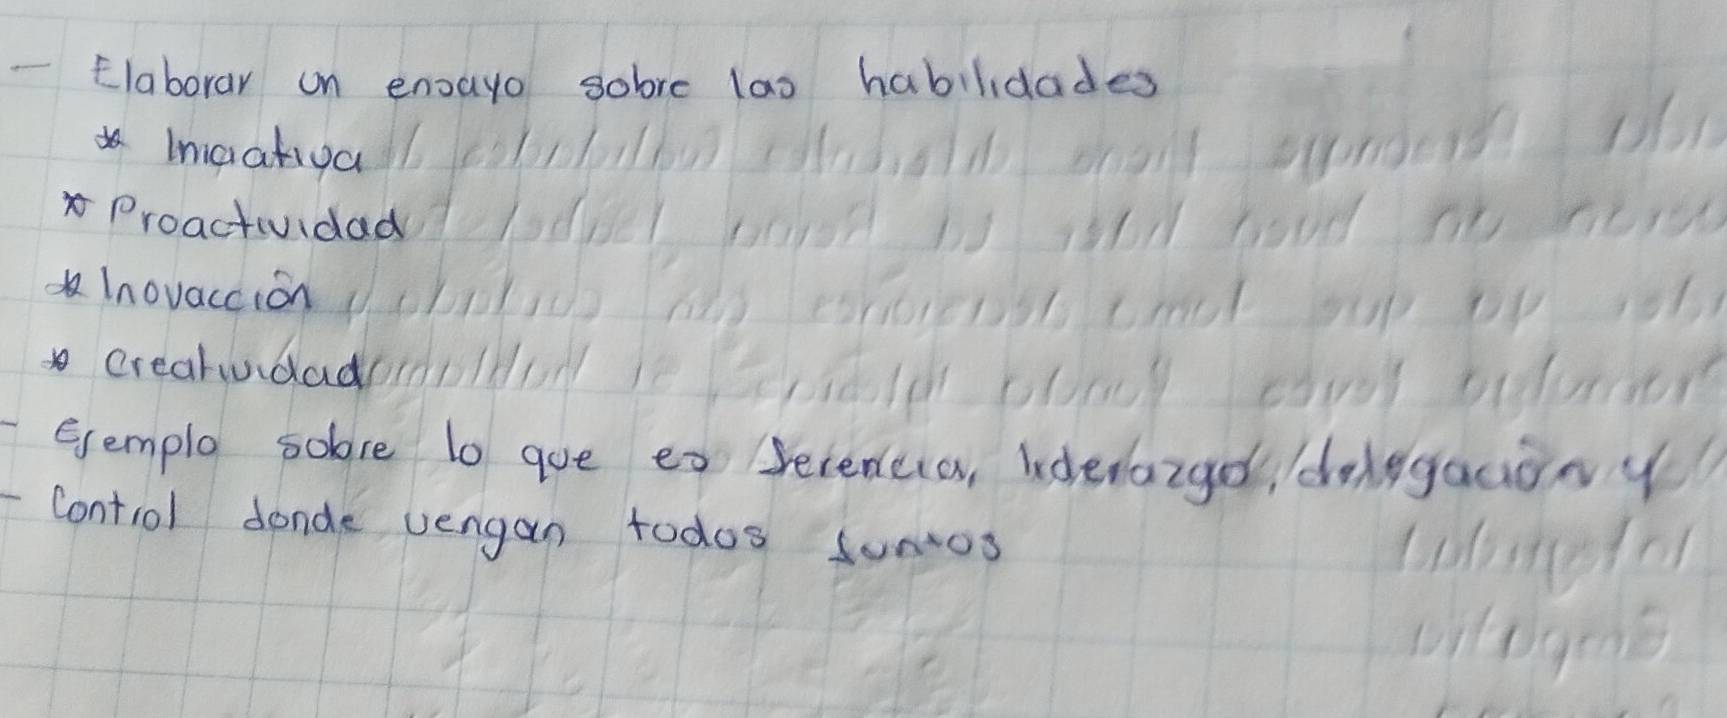 - Elaborar un ensayo sobre las habilidades
* Iniciativa
* Proactividad
* Inovacción
* Creatividad
- Ejemplo sobre lo que es Jerencia, liderazgo, delegación y
- Control donde vengan todos juntos